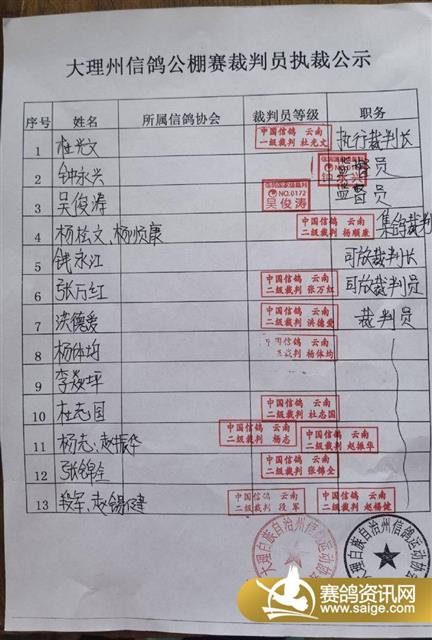 大理州信鸽公棚赛裁判员执裁公示
序号 姓名 所属信鸽协会 裁判员等级 职务
1 杜光文 中国信鸽 云南 一级裁判 杜光文 执行裁判长
2 钟永兴 监督员
3 吴俊涛 NO.0172 吴俊涛 监督员
4 杨桂文、杨顺康 中国信鸽 云南 二级裁判 杨顺康 集鸽裁判
5 钱永江 司放裁判长
6 张万红 中国信鸽 云南 二级裁判 张万红 司放裁判员
7 洪德爱 中国信鸽 云南 二级裁判 洪德爱 裁判员
8 杨体均 中国信鸽 云南 二级裁判 杨体均
9 李 坪
10 杜志国 中国信鸽 云南 二级裁判 杜志国
11 杨志、赵振华 中国信鸽 云南 二级裁判 杨志 中国信鸽 云南 二级裁判 赵振华
12 张锦全 中国信鸽 云南 二级裁判 张锦全
13 段军、赵锡健 中国信鸽 云南 二级裁判 段军 中国信鸽 云南 二级裁判 赵锡健
大理白族自治州信鸽运动协会
大理白族自治州信鸽运动协会
赛鸽资讯网
www.saige.com